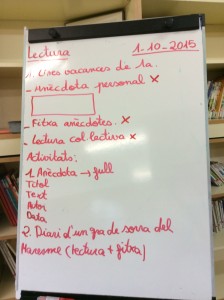 Lectura 1-10-2015
Unes vacances de 1a.
- Anècdota personal x
- Fitxa anècdotes. x
- Lectura col·lectiva x
Activitats:
1. Anècdota → full
Títol
Text
Autor
Data
2. Diari d'un gra de sorra del
Maresme (lectura + fitxa)